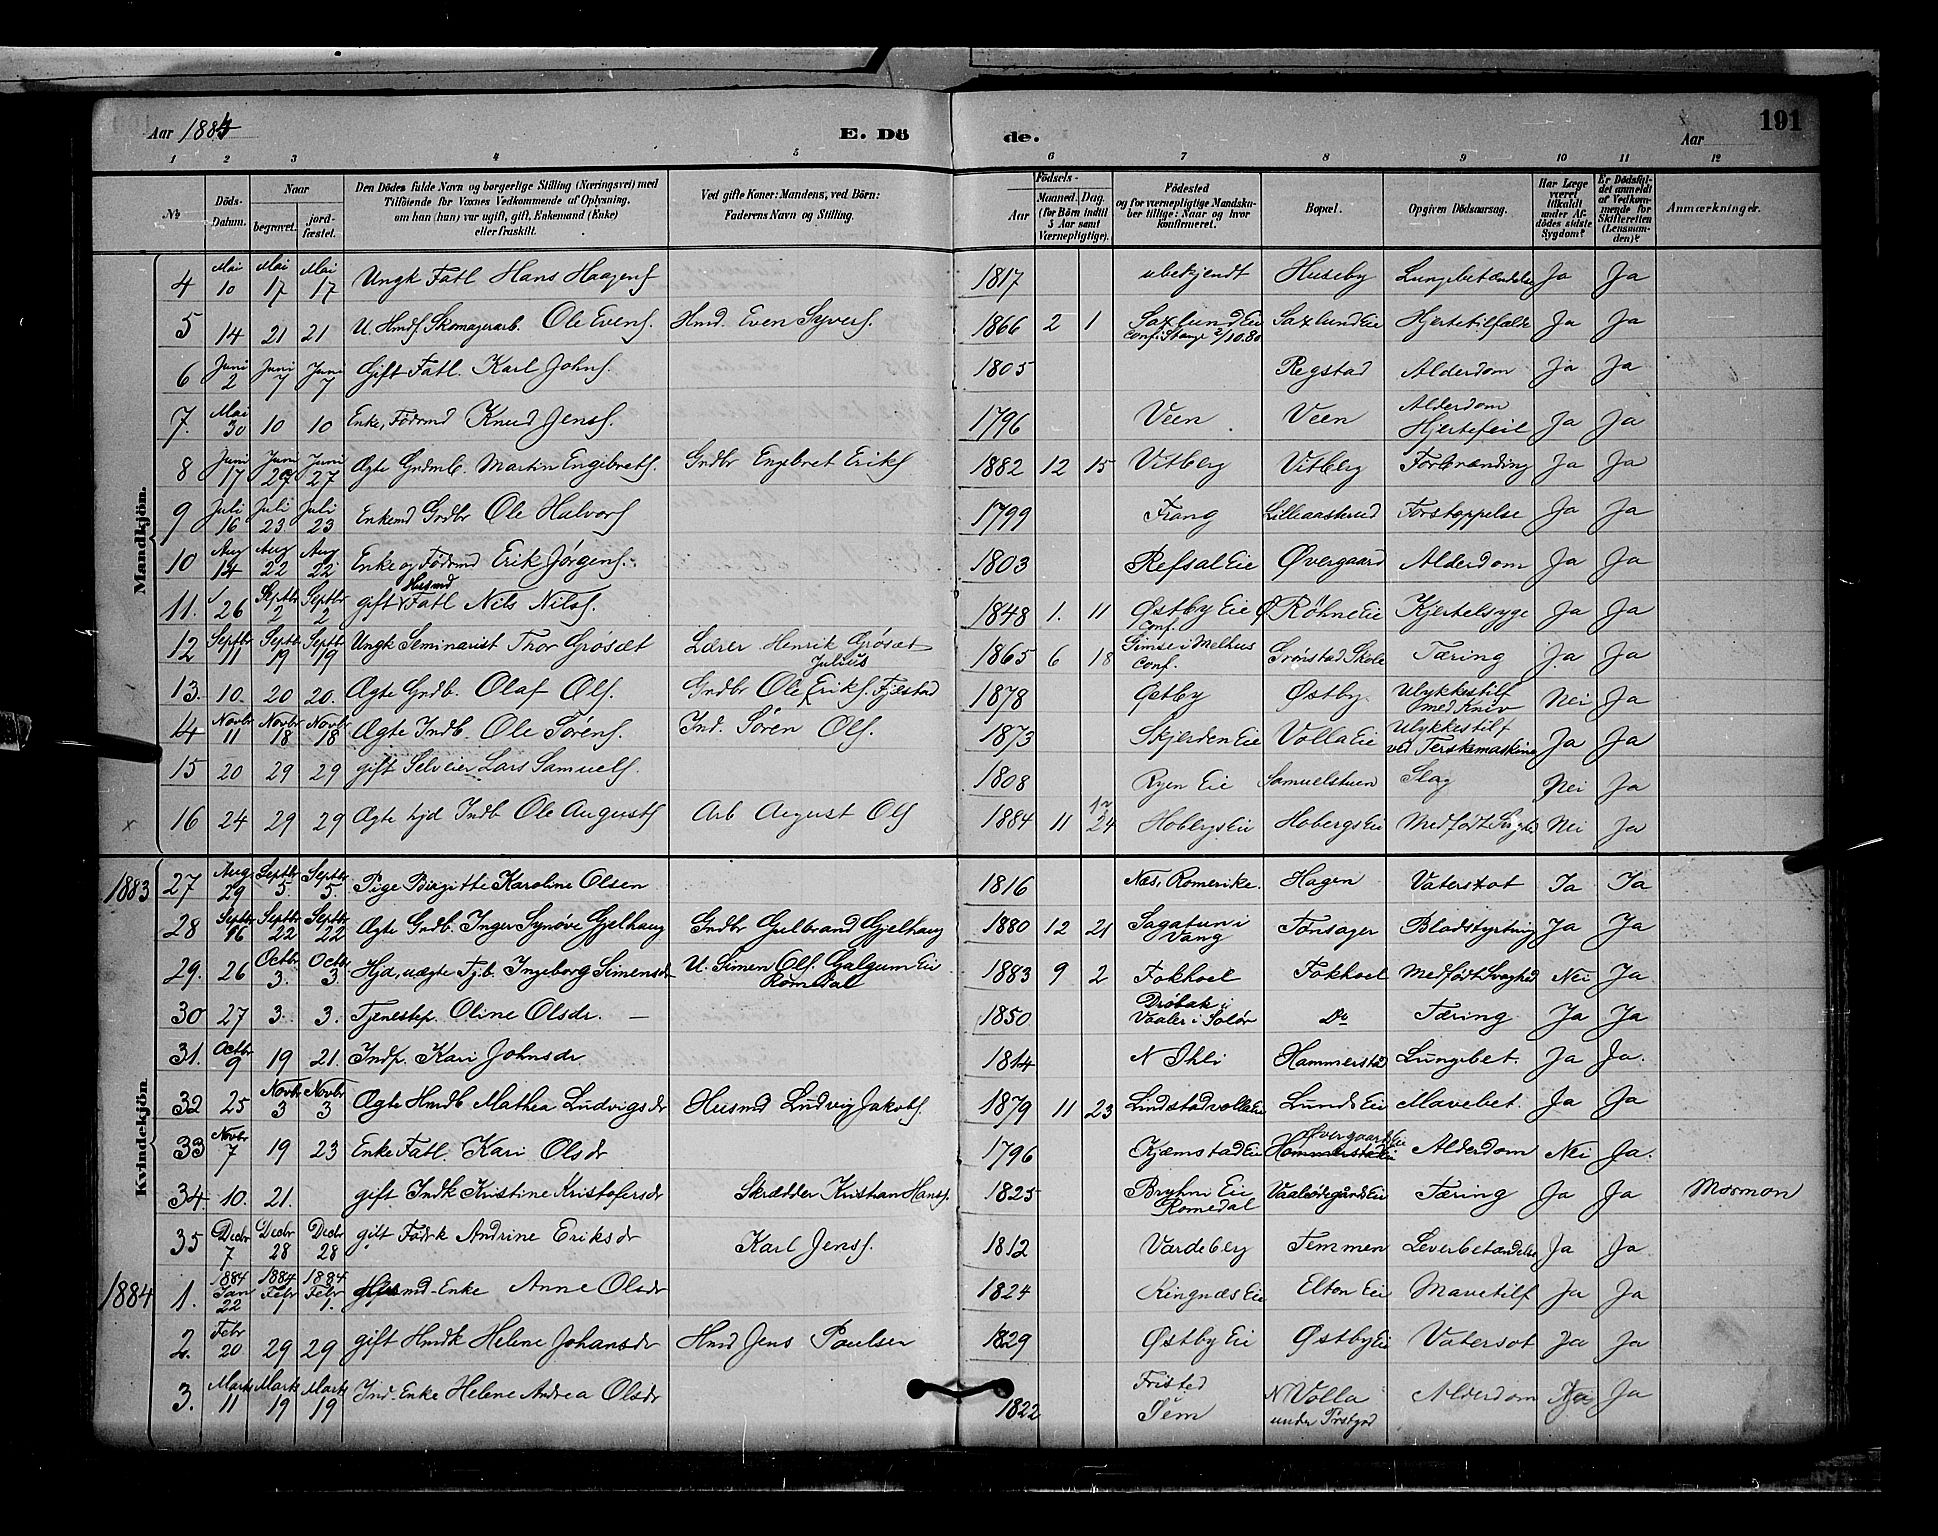 Aar 1884 E. Dö de. Aar 191
1 2 3 4 5 6 7 8 9 10 11 12
№ Döds-Datum. Naar begravet. jordfæstet. Den Dödes fulde Navn og borgerlige Stilling (Næringsvei) med Tilföiende for Voxnes Vedkommende af Oplysning, om han (hun) var ugift, gift, Enkemand (Enke) eller fraskilt. Ved gifte Koner: Mandens, ved Börn: Faderens Navn og Stilling. Födsels- Aar Maaned. Dag. (for Börn indtil 5 Aar samt Værnepligtige). Födested og for værnepligtige Mandskaber tillige: Naar og hvor konfirmeret. Bopæl. Opgiven Dödsaarsag. Har Læge været tilkaldt under Afdödes sidste Sygdom? Er Dödsfaldet anmeldt af Vedkommende for Skifteretten (Lensmanden)? Anmærkninger.
Mandkjön.
4 Mai 10 Mai 17 Mai 17 Ungk Fatl Hans Haagens. 1817 ubekjendt Huseby Lungebetændelse Ja Ja
5 14 21 21 U. Hmds. Skomagerarb. Ole Evens. Hmd. Even Syvers. 1866 2 1 Saxlund Eie Conf. Stange 2/10.80 Saxlund Eie Hjertetilfælde Ja Ja
6 Juni 2 Juni 7 Juni 7 Gift Fatl. Karl Johns. 1805 Regstad Alderdom Ja Ja
7. Mai 30 10 10 Enke, Födrmd Knud Jens. 1796 Veen Veen Alderdom Hjertefeil Ja Ja
8 Juni 17 Juni 27 Juni 27 Ægte Grdmb. Martin Engebrets. Grdbr Engebret Eriks. 1882 12 15 Vitberg Vitberg Forbrænding Ja Ja
9 Juli 16 Juli 23 Juli 23 Enkemd Grdbr Ole Halvors. 1799 Frang Lilleaasterud Forstoppelse Ja Ja
10 Aug 14 Aug 22 Aug 22 Enke og Födrmd Erik Jørgens. 1803 Refsal Eie Øvergaard Alderdom Ja Ja
11. 26 Septbr 2 Septbr 2 gift Husmd Fatl Nils Nils. 1848 1. 11 Østby Eie Conf. Ø Röhne Eie Kjertelsyge Ja Ja
12 Septbr 11 Septbr 19 Septbr 19 Ungk Seminarist Thor Grøsæt Lærer Henrik Grøsæt 1865 6 18 Gimse i Melhus Conf. Grønstad Skole Tæring Ja Ja
13. 10. 20 20. Ægte Grdb. Olaf Ols. Grdbr Ole Julius Eriks. Fjelstad 1878 Østby Østby Ulykkestilf med Kniv Nei Ja
14 Novbr 11 Novbr 18 Novbr 18 Ægte Indb. Ole Sørens. Ind. Søren Ols. 1873 Skjerden Eie Volla Eie Ulykkestilf ved Terskemaskine Ja Ja
15 20 29 29 gift Selveier Lars Samuels. 1808 Ryen Eie Samuelstuen Slag Nei Ja
x 16 24 29 29 Ægte hjd Indb Ole Augusts Arb August Ols 1884 11 24 Hobergs Eie Hobergs Eie Medfødt Svaghed Nei Ja
Kvindekjön.
1883 27 Aug 29 Septbr 5 Septbr 5 Pige Birgitte Karoline Olsen 1816 Næs, Romerike. Hagen Vatersot Ja Ja
28 Septbr 16 Septbr 22 Septbr 22 Ægte Grdb. Inger Synøve Gjelhaug Grdbr Gulbrand Gjelhaug 1880 12 21 Sagatun i Vang Tønsager Blodstyrtning Ja Ja
29. 26 Octbr 3. Octbr 3. Hjd, uægte Tj.b. Ingeborg Simensdr U. Simen Ols. Galgum Eie Romedal 1883 9 2 Fokhoel Fokhoel Medfødt Svaghed Nei Ja
30 27 3. 3. Tjenestep. Oline Olsdr. 1850 Drøbak i Vaaler i Solør Do Tæring Ja Ja
31. Octbr 9 19 21. Indp. Kari Johnsdr 1814 N Ihli Hammerstad Lungebet. Ja Ja.
32 25 Novbr 3 Novbr 3 Ægte Hmdb Mathea Ludvigsdr Husmd Ludvig Jakobs. 1879 11 23 Lindstadvolla Eie Lunds Eie Mavebet. Ja Ja
33 Novbr 7 19 23 Enke Fatl. Kari Olsdr 1796 Kjæmstad Eie Øvergaard Eie Alderdom Nei Ja.
34. 10. 21. gift Indk Kristine Kristofersdr Skrædder Kristian Hans. 1825 Bryhni Eie Romedal Vaaleødegaards Eie Tæring Ja Ja Mormon
35 Decbr 7 Decbr 28 Decbr 28 gift Födrk Andrine Eriksdr Karl Jens. 1812 Vardeberg Temmen Leverbetændelse Ja Ja
1884 1. 1884 Jan 22 1884 Febr 1 1884 Febr 1. Husmd-Enke Anne Olsdr 1824 Ringnæs Eie Elton Eie Mavetilf Ja Ja
2. Febr 20 29 29 gift Hmdk Helene Johansdr Hmd Jens Paulsen 1829 Østby Eie Østby Eie Vatersot Ja Ja
3. Marts 11 Marts 19 Marts 19 Ind-Enke Helene Andrea Olsdr 1822 Fristed i Tem N Volla under Prstgrd Alderdom Nei Ja